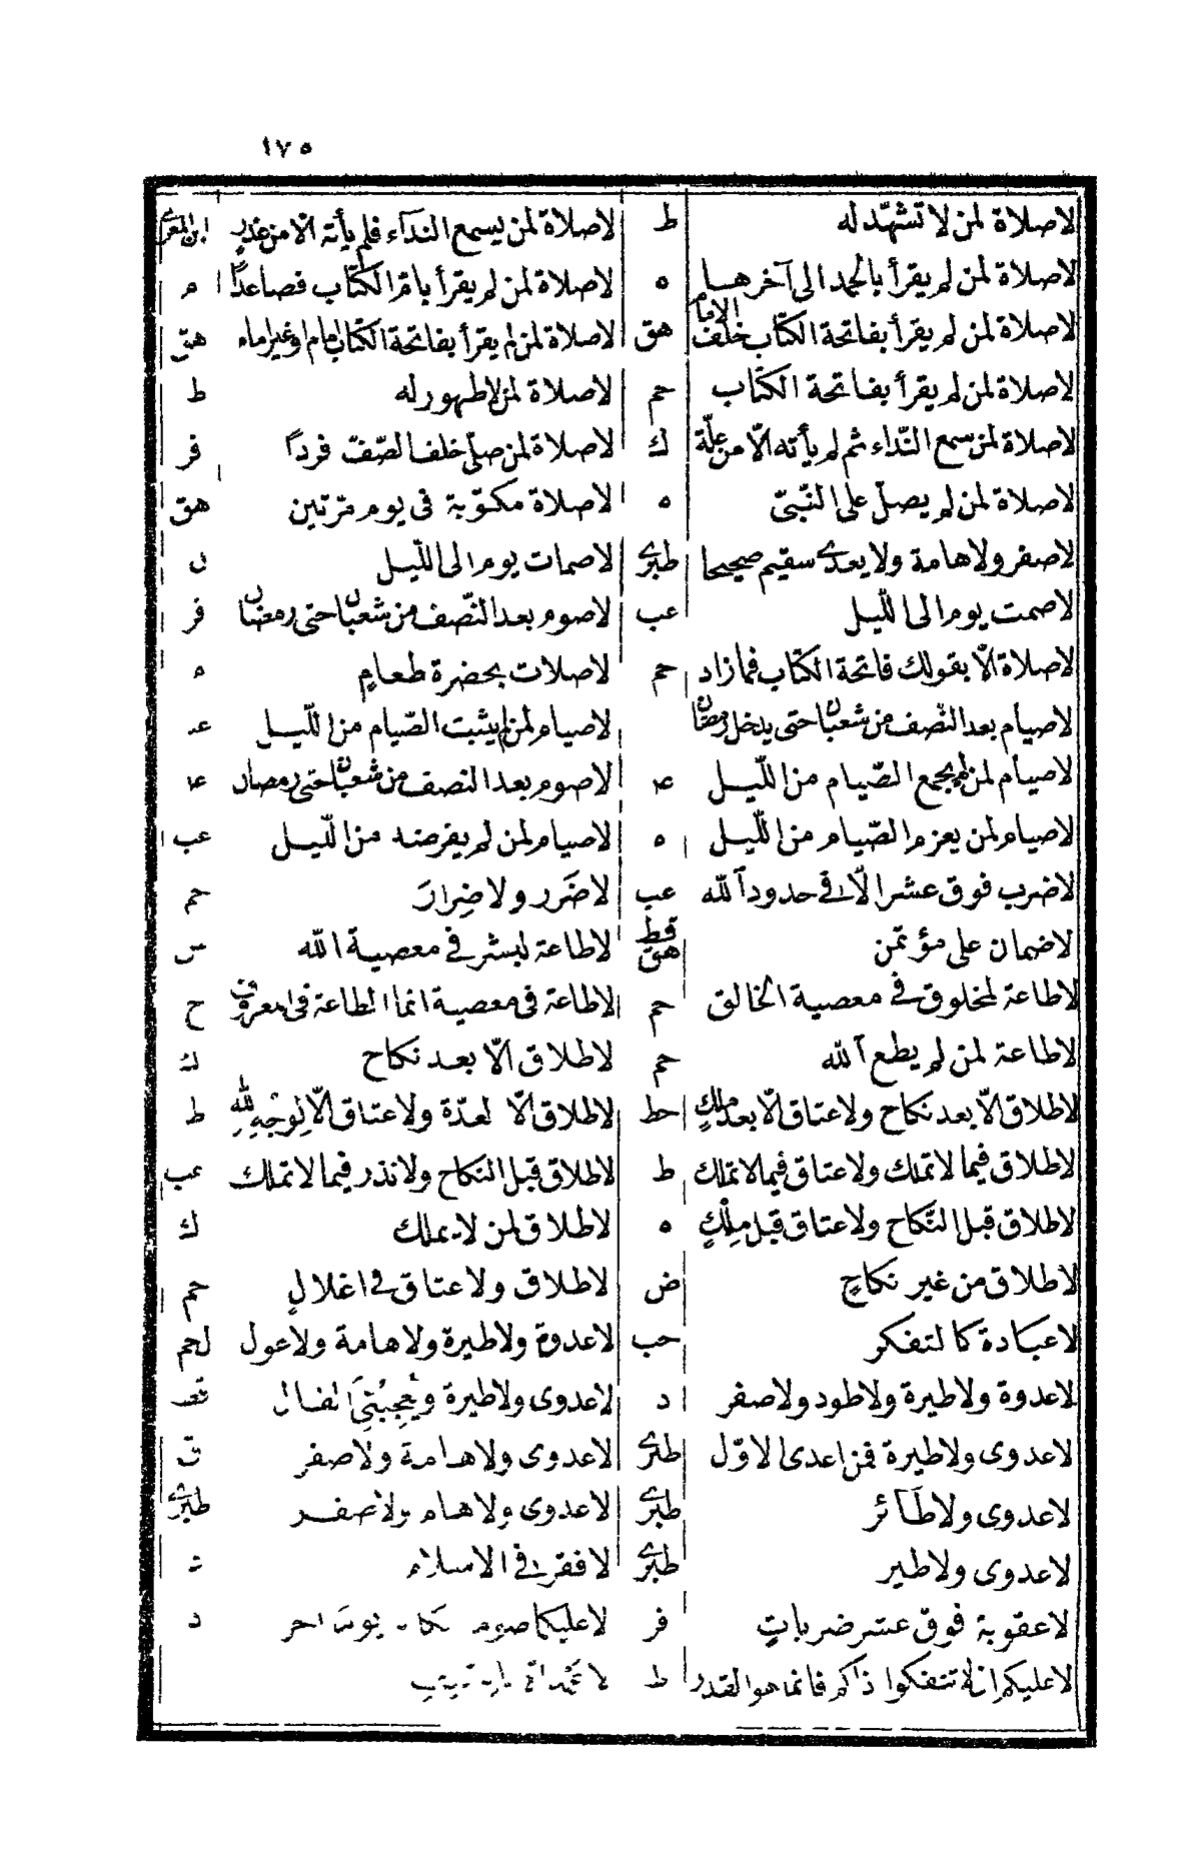 ١٧٥
لاصلاة لمن لا تشهّد له ط لاصلاة لمن يسمع النداء فلم يأته الا من عذر
لاصلاة لمن لم يقرأ بالحمد الى آخرهـا ه لاصلاة لمن لم يقرأ بام الكتاب فصاعدًا م
لاصلاة لمن لم يقرأ بفاتحة الكتاب خلف الامام هق لاصلاة لمن لم يقرأ بفاتحة الكتاب امام او غير امام هق
لاصلاة لمن لم يقرأ بفاتحة الكتاب حم لاصلاة لمن لاطهور له ط
لاصلاة لمن سمع النّداء ثم لم يأته الّا من علّة ك لاصلاة لمن صلّى خلف الصّفّ فردًا فر
لاصلاة لمن لم يصلّ على النّبىّ ه لاصلاة مكتوبة فى يوم مرّتين هق
لاصفر ولاهامة ولايعدى سقيم صحيحا طبرى لاصمات يوم الى اللّيل ن
لاصمت يوم الى اللّيل عب لاصوم بعد النّصف من شعبان حتى رمضان فر
لاصلاة الّا بقولك فاتحة الكتاب فمازاد حم لاصلات بحضرة طعامٍ ه
لاصيام بعد النّصف من شعبان حتى يدخل رمضان لاصيام لمن لم يثبت الصّيام من اللّيـل عد
لاصيام لمن لم يجمع الصّيام من اللّيـل لاصوم بعد النصف من شعبان حتى رمضان
لاصيام لمن يعزم الصّيام من اللّيـل ه لاصيام لمن لم يفرضه من اللّيـل عب
لاضرب فوق عشر الّا فى حدود الله عب لاضَرر ولاضِرارَ حم
لاضمان على مؤتمن قط هق لاطاعة لبشر فى معصية الله
لاطاعة لمخلوق فى معصية الخالق حم لاطاعة فى معصية انما الطاعة فى المعروف ح
لاطاعة لمن لم يطع الله حم لاطلاق الّا بعد نكاح ك
لاطلاق الّا بعد نكاح ولاعتاق الّا بعد ملكٍ حط لاطلاق الّا لعدّة ولاعتاق الّا لوجهِ للهِ ط
لاطلاق فيما لاتملك ولاعتاق فيما لاتملك ط لاطلاق قبل النكاح ولانذر فيما لاتملك عب
لاطلاق قبل النّكاح ولاعتاق قبل مِلْكٍ ه لاطلاق لمن لايملك ك
لاطلاق من غير نكاحٍ ض لاطلاق ولاعتاق فى اغلالٍ حم
لاعبادة كالتفكر حب لاعدوة ولاطيرة ولاهامة ولاغول لحم
لاعدوة ولاطيرة ولاطود ولاصفر د لاعدوى ولاطيرة ويُعْجِبُنِىَ الفال
لاعدوى ولاطيرة فمن اعدى الاوّل طبرى لاعدوى ولاهامة ولاصفر ق
لاعدوى ولاطائر طبرى لاعدوى ولاهام ولاصفـر طبرى
لاعدوى ولاطير طبرى لافقر فى الاسلام
لاعقوبة فوق عشر ضرباتٍ فر لاعليكما صوما
لاعليكم ان لا تتفكوا ذاكم فانما هو القدر ط